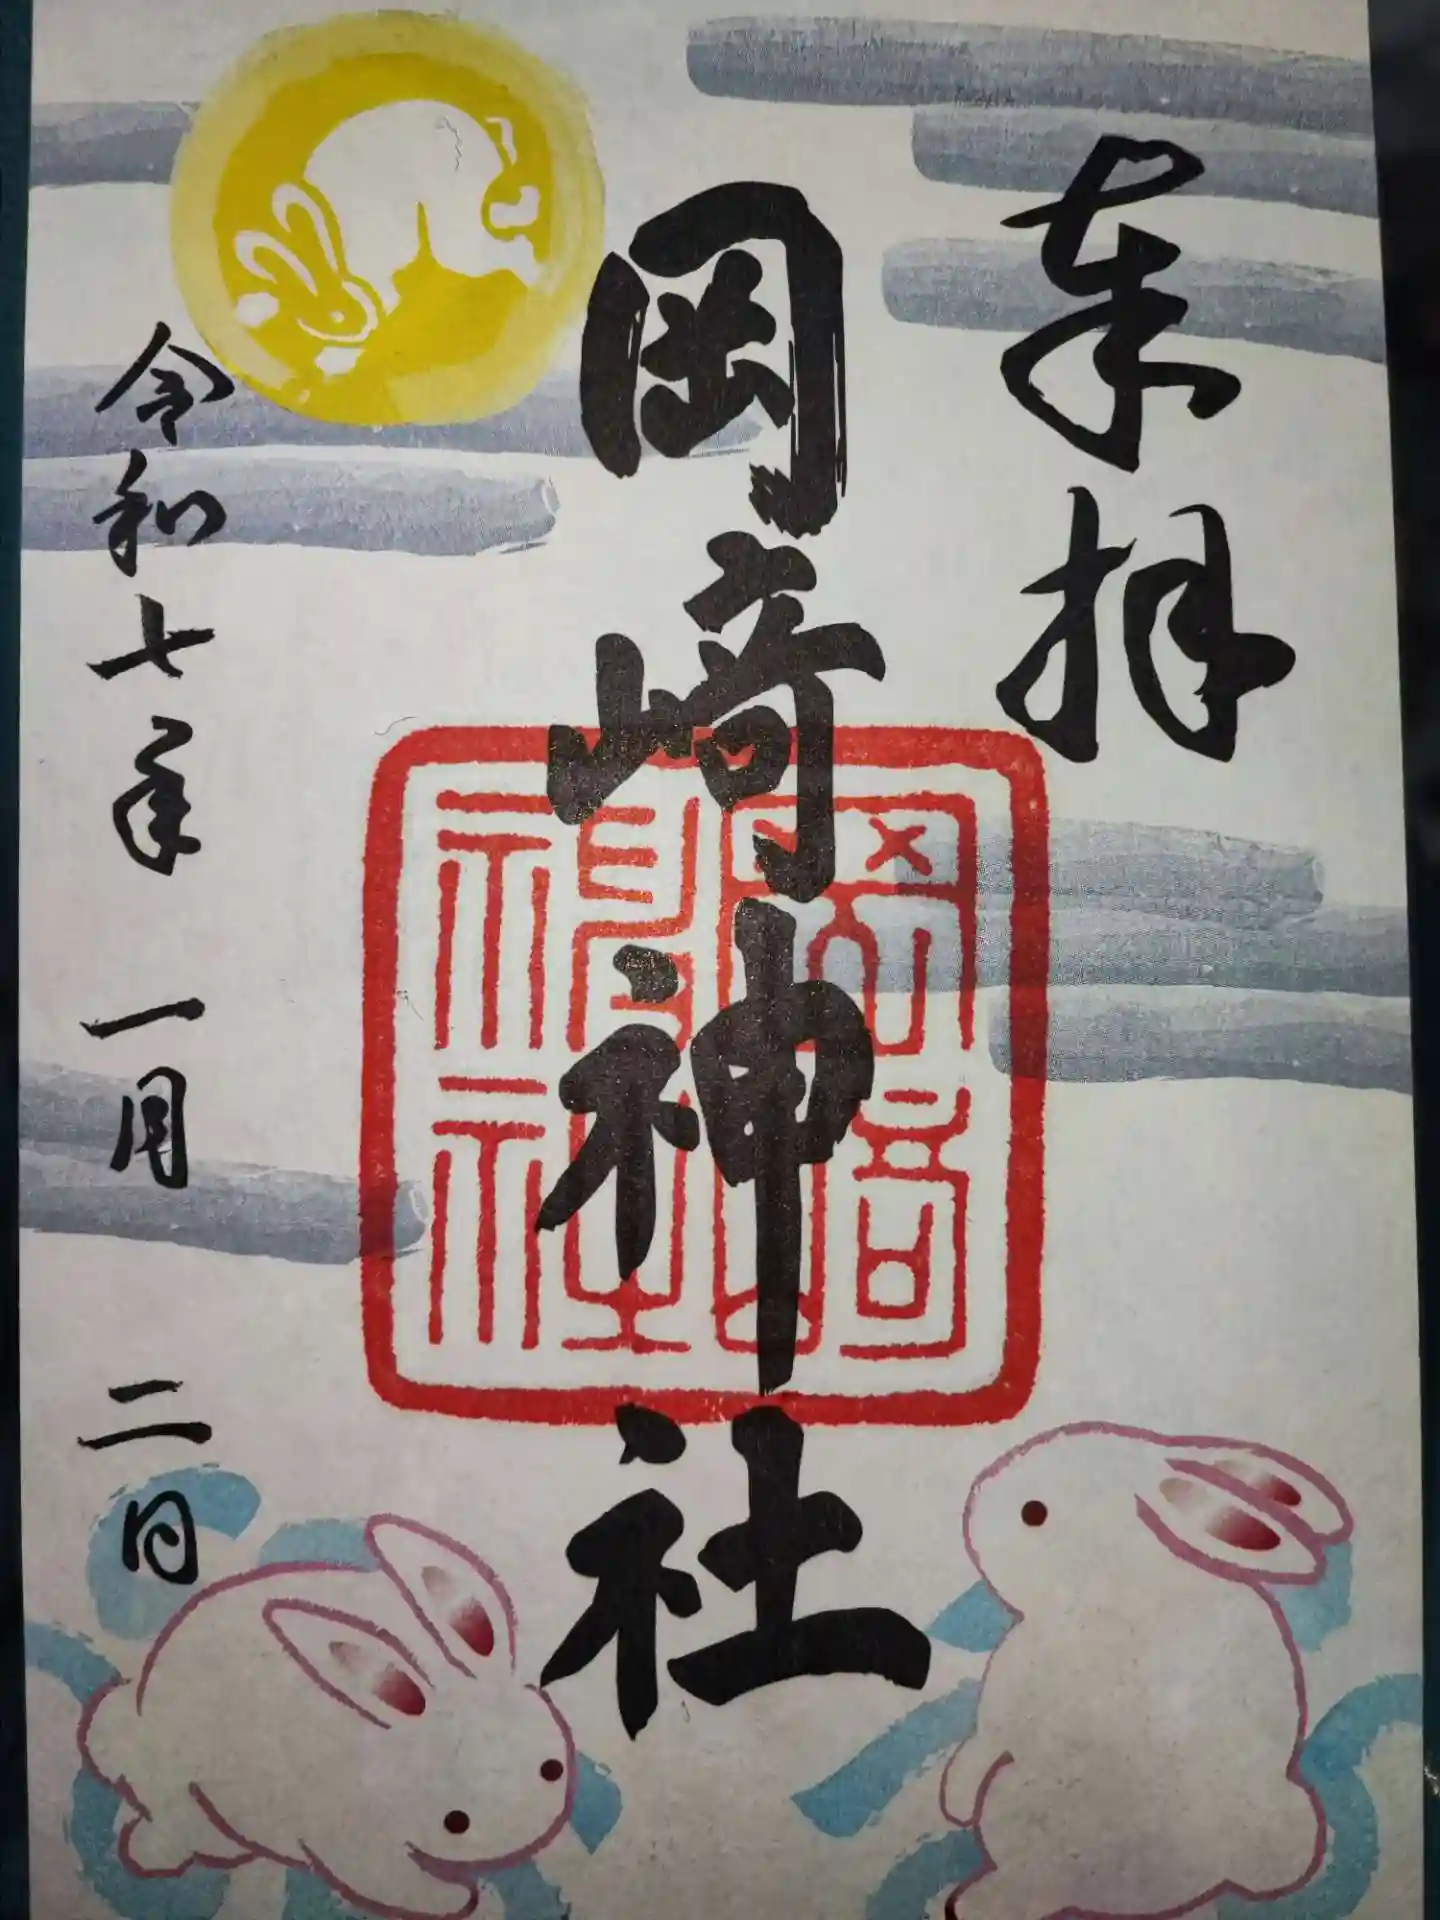 奉拝
岡崎神社
岡崎神社
令和七年一月二日